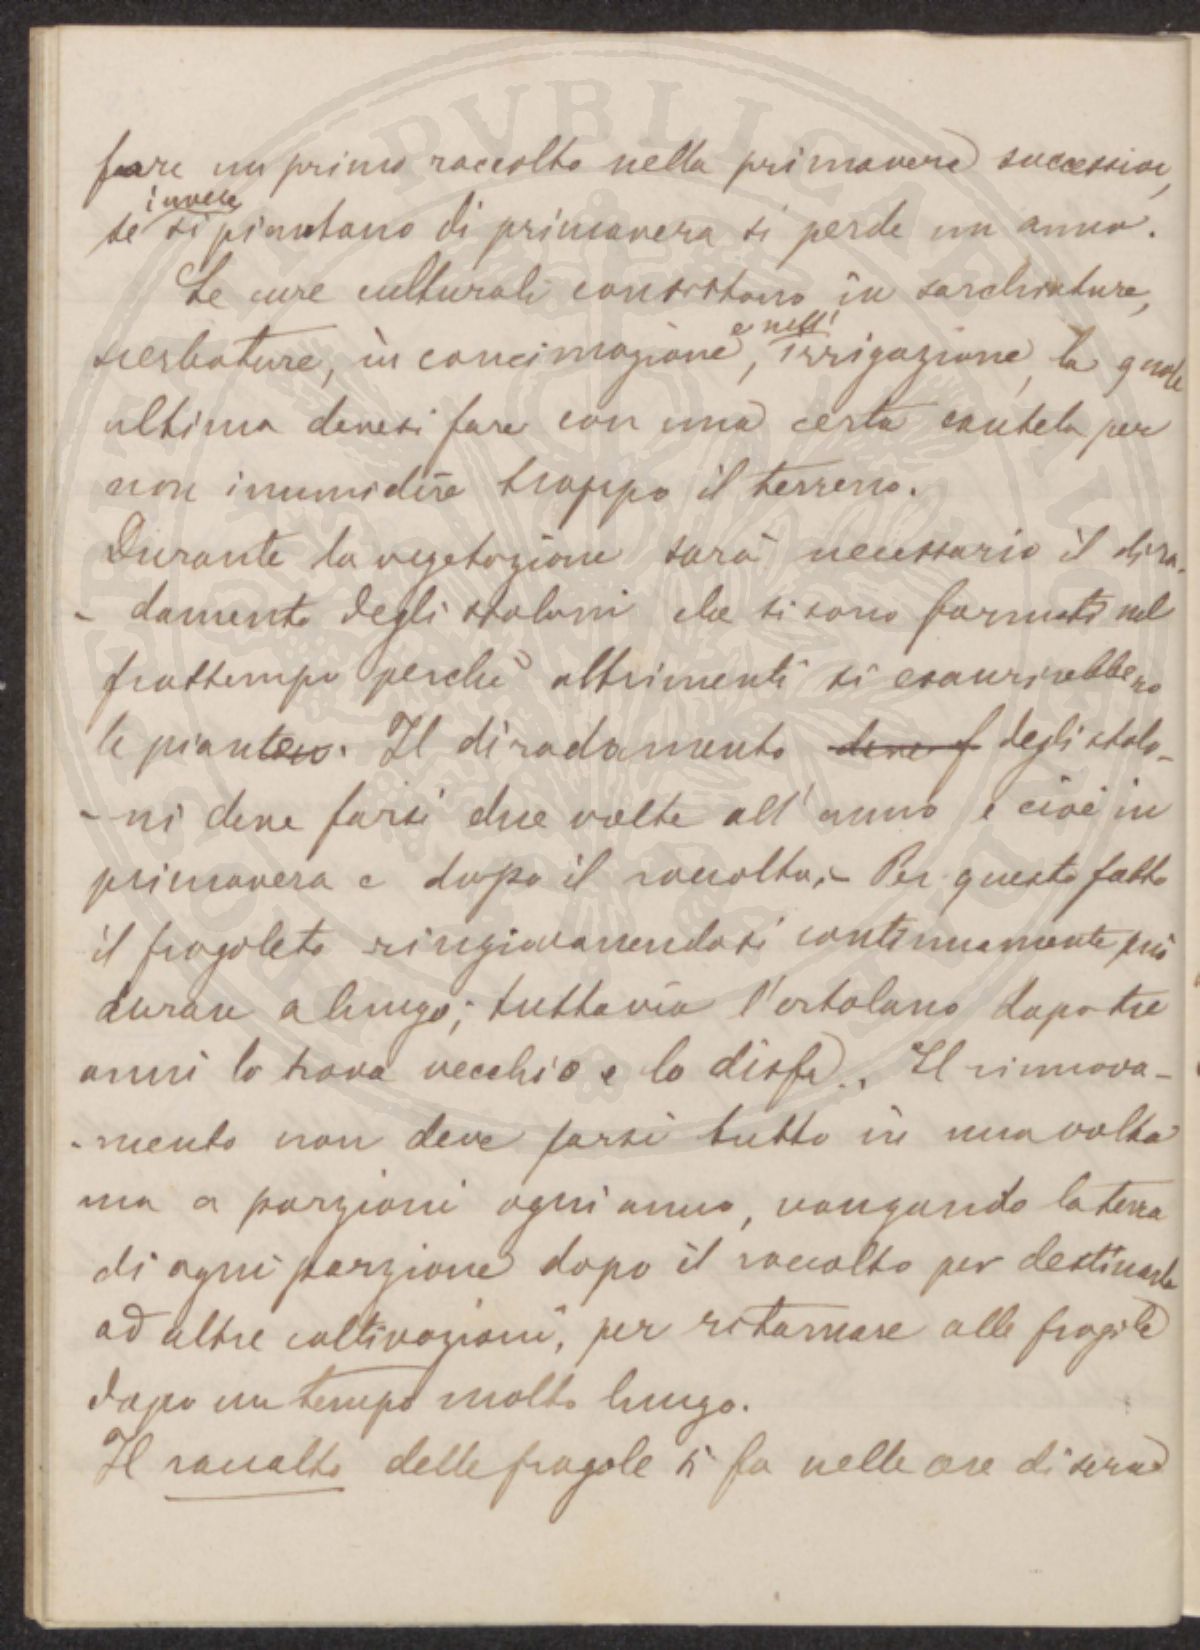 fare un primo raccolto nella primavera successiva,
se invece si piantano di primavera si perde un anno.
Le cure culturali consistono in sarchiature,
scerbature, in concimazione, e nell' irrigazione, la quale
ultima devesi fare con una certa cautela per
non inumidire troppo il terreno.
Durante la vegetazione sarà necessario il dira-
- damento degli stoloni che si sono formati nel
frattempo perchè altrimenti si esaurirebbero
le piante. Il diradamento deve f degli stolo-
- ni deve farsi due volte all'anno e cioè in
primavera e dopo il raccolto. - Per questo fatto
il fragoleto ringiovanendosi continuamente può
durare a lungo; tuttavia l'ortolano dopo tre
anni lo trova vecchio e lo disfa. Il rinnova-
- mento non deve farsi tutto in una volta
ma a porzioni ogni anno, vangando la terra
di ogni porzione dopo il raccolto per destinarla
ad altre coltivazioni, per ritornare alle fragole
dopo un tempo molto lungo.
Il raccolto delle fragole si fa nelle ore di sera